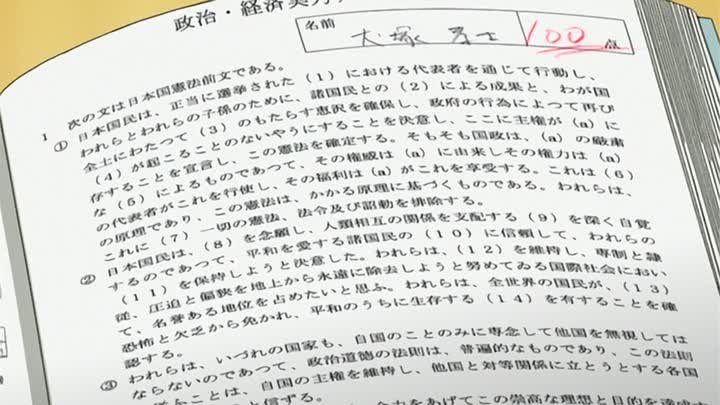 政治・経済実力
名前 大塚 100 点
1 次の文は日本国憲法前文である。
① 日本国民は、正当に選挙された（1）における代表者を通じて行動し、
われらとわれらの子孫のために、諸国民との（2）による成果と、わが国
全土にわたつて（3）のもたらす恵沢を確保し、政府の行為によつて再び
（4）が起こることのないやうにすることを決意し、ここに主権が（a）に
存することを宣言し、この憲法を確定する。そもそも国政は、（a）の厳粛
な（5）によるものであつて、その権威は（a）に由来しその権力は（a）
の代表者がこれを行使し、その福利は（a）がこれを享受する。これは（6）
の原理であり、この憲法は、かかる原理に基づくものである。われらは、
これに（7）一切の憲法、法令及び詔勅を排除する。
② 日本国民は、（8）を念願し、人類相互の関係を支配する（9）を深く自覚
するのであつて、平和を愛する諸国民の（10）に信頼して、われらの
（11）を保持しようと決意した。われらは、（12）を維持し、専制と隷
従、圧迫と偏狭を地上から永遠に除去しようと努めてゐる国際社会におい
て、名誉ある地位を占めたいと思ふ。われらは、全世界の国民が、（13）
恐怖と欠乏から免かれ、平和のうちに生存する（14）を有することを確
認する。
③ われらは、いづれの国家も、自国のことのみに専念して他国を無視しては
ならないのであつて、政治道徳の法則は、普遍的なものであり、この法則
ことは、自国の主権を維持し、他国と対等関係に立とうとする各国
と信ずる。
をあげてこの崇高な理想と目的を達成す